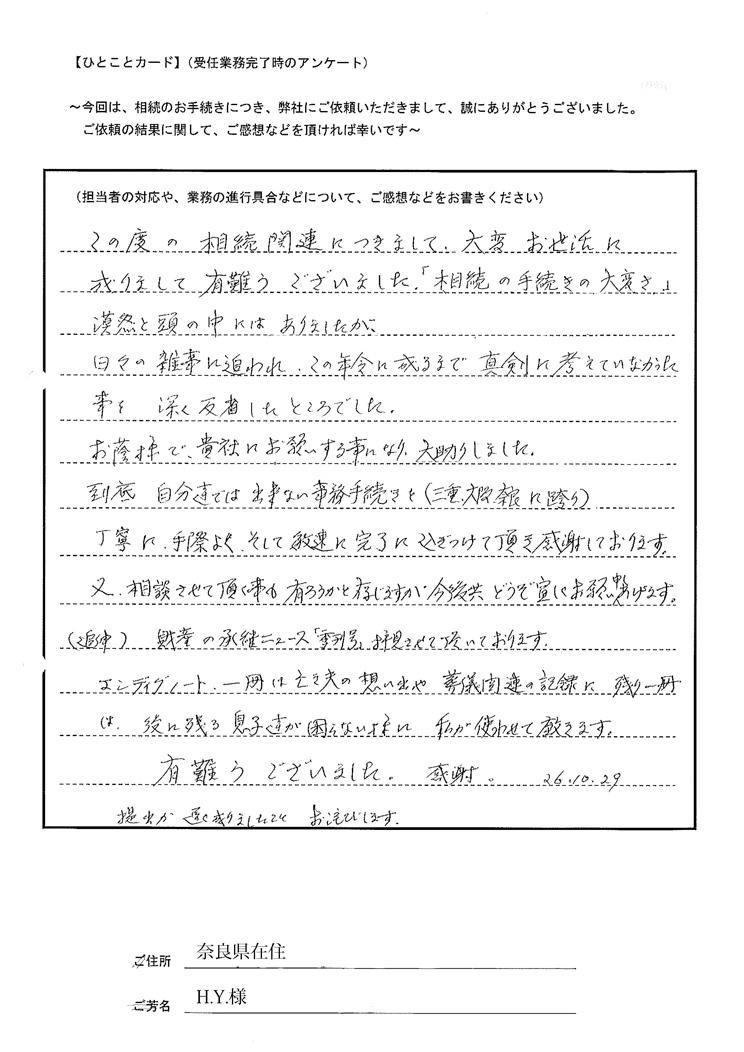 【ひとことカード】（受任業務完了時のアンケート）
～今回は、相続のお手続きにつき、弊社にご依頼いただきまして、誠にありがとうございました。
ご依頼の結果に関して、ご感想などを頂ければ幸いです～
（担当者の対応や、業務の進行具合などについて、ご感想などをお書きください）
この度の 相続関連につきまして、大変 お世話に
成りまして 有難う ございました。「相続の手続きの大変さ」
漠然と頭の中には ありましたが、
日々の雑事に追われ、この年令に成るまで 真剣に考えていなかった
事を 深く反省したところでした。
お蔭様で、貴社にお願いする事になり、大助りしました。
到底 自分達では 出来ない事務手続きを（三重、大阪、奈良に跨り）
丁寧に、手際よく、そして敏速に完了に こぎつけて頂き感謝しております。
又、相談させて頂く事も 有ろうかと存じますが 今後共 どうぞ宜しくお願い申し上げます。
（追伸） 財産の承継ニュース「季刊号」拝見させて頂いております。
エンディグノート、一冊は亡き夫の想い出や 葬儀関連の記録に 残り一冊
は、後に残る息子達が困らない様に 私が使わせて戴きます。
有難う ございました。 感謝。 26.10.29
提出が 遅く成りましたこと お詫びします。
ご住所 奈良県在住
ご芳名 H.Y.様